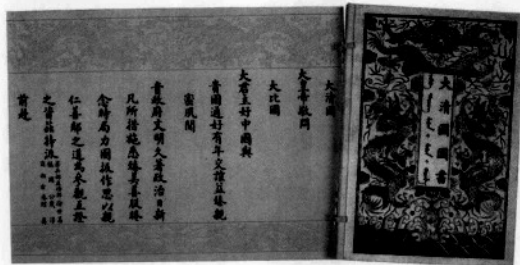 大清國國書
大清國
大皇帝敬問
大比國
大君主好中國與
貴國通好有年交誼益臻親
密夙聞
貴政府文明大啟政治日新
凡所措施悉臻美善朕眷
念時局力圖振作思以親
仁善鄰之道為參觀互證
之資茲特派
前赴